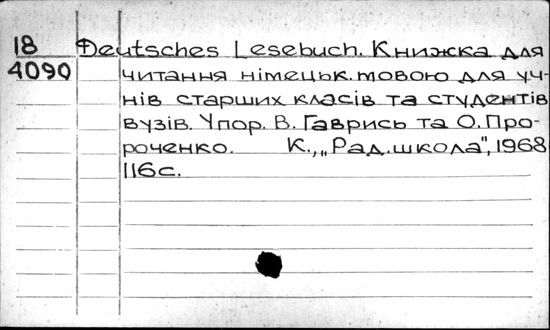 18 Deutsches Lesebuch. Книжка для
4090 читання німецьк. мовою для уч-
нів старших класів та студентів
вузів. Упор. В. Гаврись та О. Про-
роченко. К., „Рад. школа", 1968
116с.